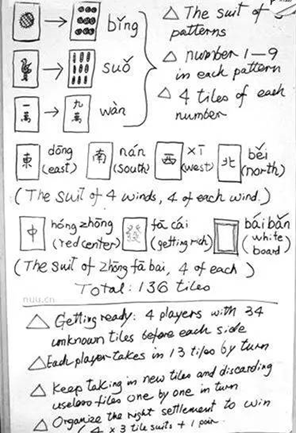 bǐng
suǒ
一萬 九萬 wàn
△ The suit of patterns
△ number 1—9 in each pattern
△ 4 tiles of each number
東 dōng (east) 南 nán (south) 西 xī (west) 北 běi (north)
(The suit of 4 winds, 4 of each wind.)
中 hóng zhōng (red center) 發 fā cái (getting rich) bái bǎn (white board)
(The suit of zhōng fā bài, 4 of each)
Total: 136 tiles
nuu.cn
△ Getting ready: 4 players with 34
unknown tiles before each side
△ Each player takes in 13 tiles by turn
△ Keep taking in new tiles and discarding
useless tiles one by one in turn
△ Organize the right settlement to win
4 × 3 tile suits + 1 pair